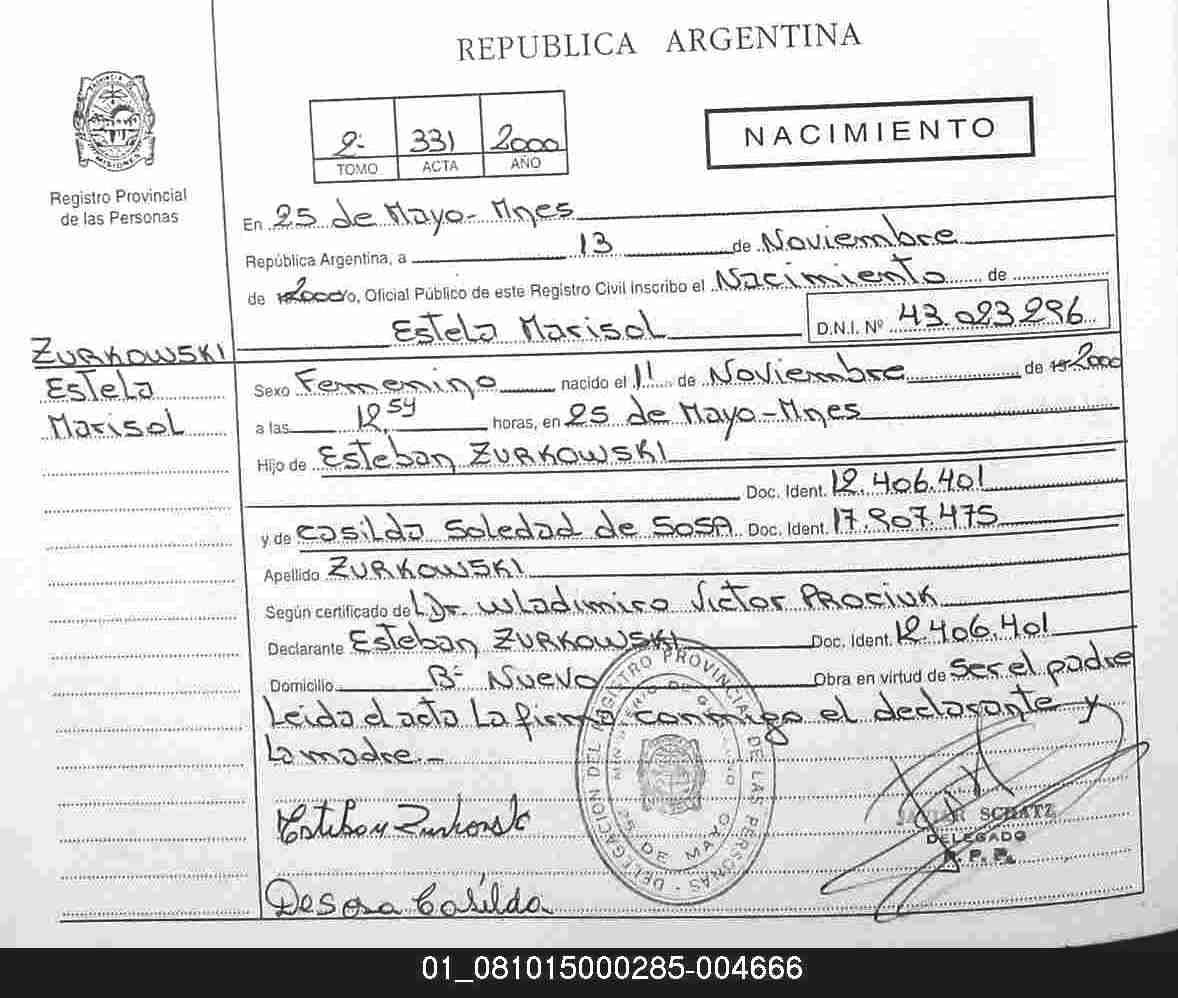 REPUBLICA ARGENTINA
PROVINCIA DE MISIONES
Registro Provincial
de las Personas
2º 331 2000
TOMO ACTA AÑO
NACIMIENTO
En 25 de Mayo - Mnes
República Argentina, a 13 de Noviembre
de 2000, Oficial Público de este Registro Civil inscribo el Nacimiento de
Estela Marisol D.N.I. Nº 43.023.296
ZURKOWSKI
Estela
Marisol
Sexo Femenino nacido el 11 de Noviembre de 2000
a las 12,54 horas, en 25 de Mayo - Mnes
Hijo de Esteban ZURKOWSKI
Doc. Ident. 12.406.401
y de Casilda Soledad de SOSA Doc. Ident. 17.907.475
Apellido ZURKOWSKI
Según certificado del Dr. Wladimiro Victor PROCIUK
Declarante Esteban ZURKOWSKI Doc. Ident. 12.406.401
Domicilio Bº Nuevo Obra en virtud de Ser el padre
Leida el acta La firma conmigo el declarante y
La madre.-
DELEGACION DEL REGISTRO PROVINCIAL DE LAS PERSONAS
MINISTERIO DE GOBIERNO
25 DE MAYO
SCHATZ
DELEGADO
R. P. P.
Esteban Zurkowski
De Sosa Casilda
01_081015000285-004666